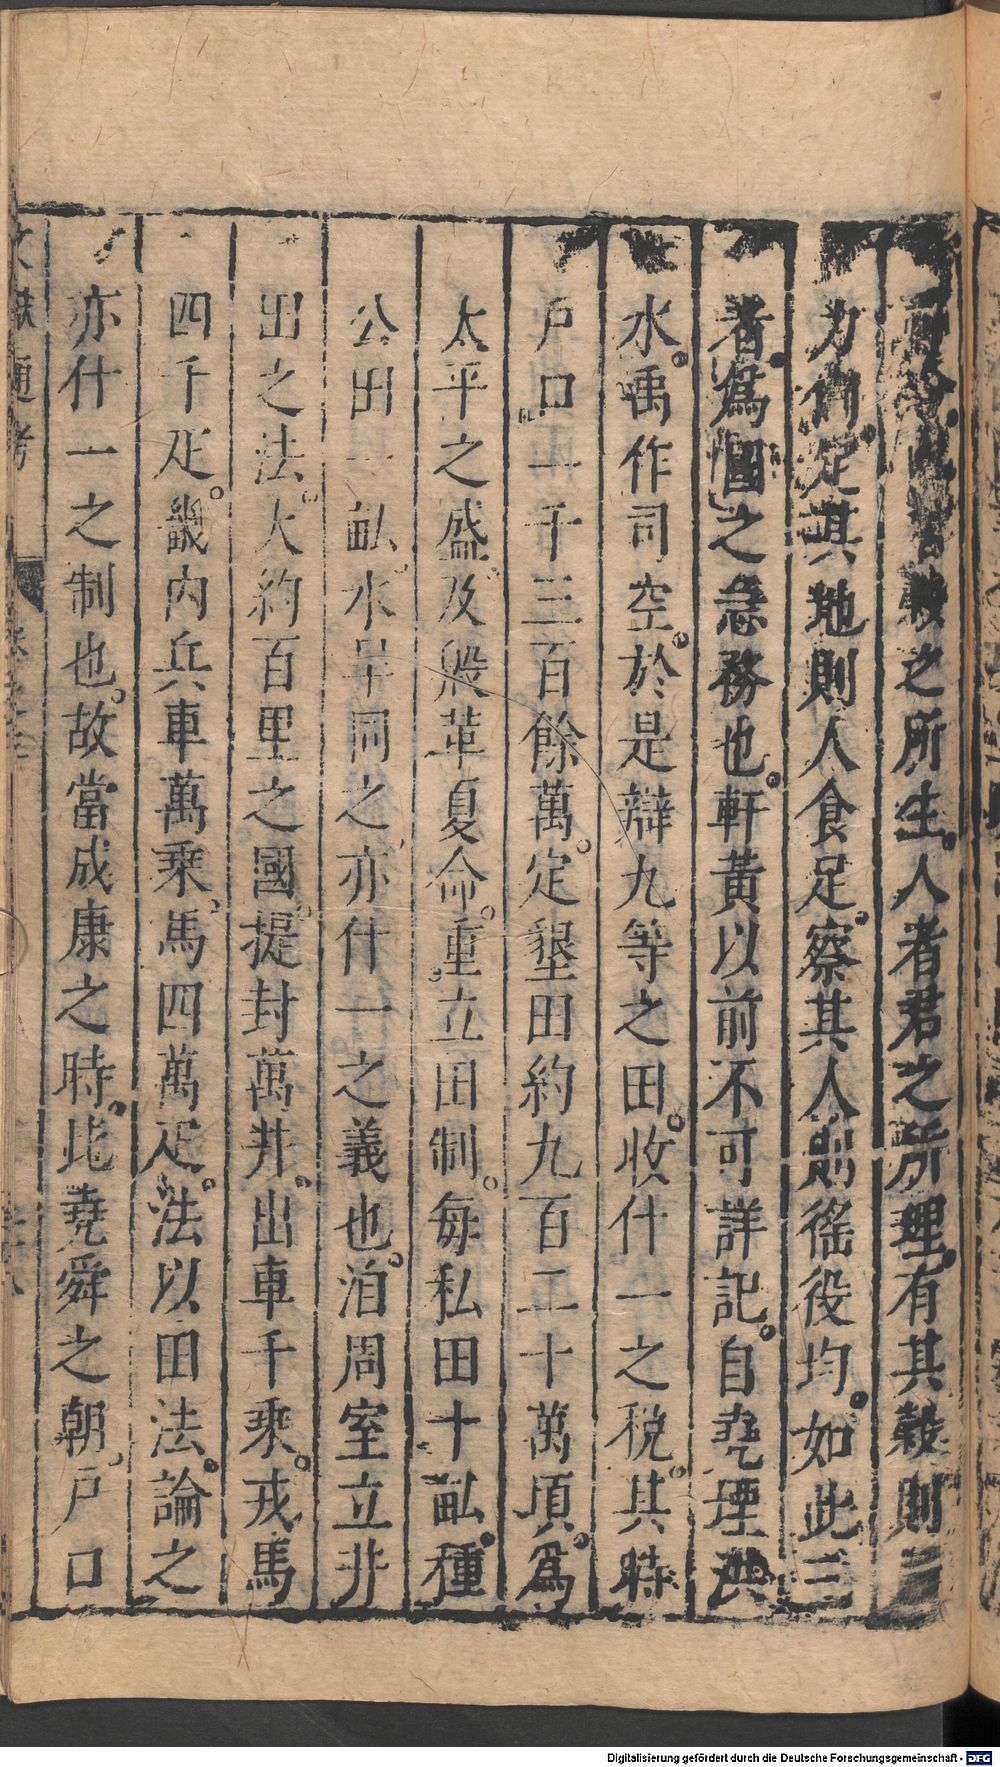 穀之所生。人者君之所理。有其穀則
力備。定其地則人食足。察其人則徭役均。如此三
者。為國之急務也。軒黃以前不可詳記。自堯堙洪
水。禹作司空。於是辯九等之田。收什一之稅。其時
戶口一千三百餘萬。定墾田約九百二十萬頃。為
太平之盛。及殷革夏命。重立田制。每私田十畝。種
公田一畝。水旱同之。亦什一之義也。洎周室立井
田之法。大約百里之國。提封萬井。出車千乘。戎馬
四千疋。畿內兵車萬乘。馬四萬疋。法以田法。論之
亦什一之制也。故當成康之時。比堯舜之朝。戶口
通考
Digitalisierung gefördert durch die Deutsche Forschungsgemeinschaft - DFG